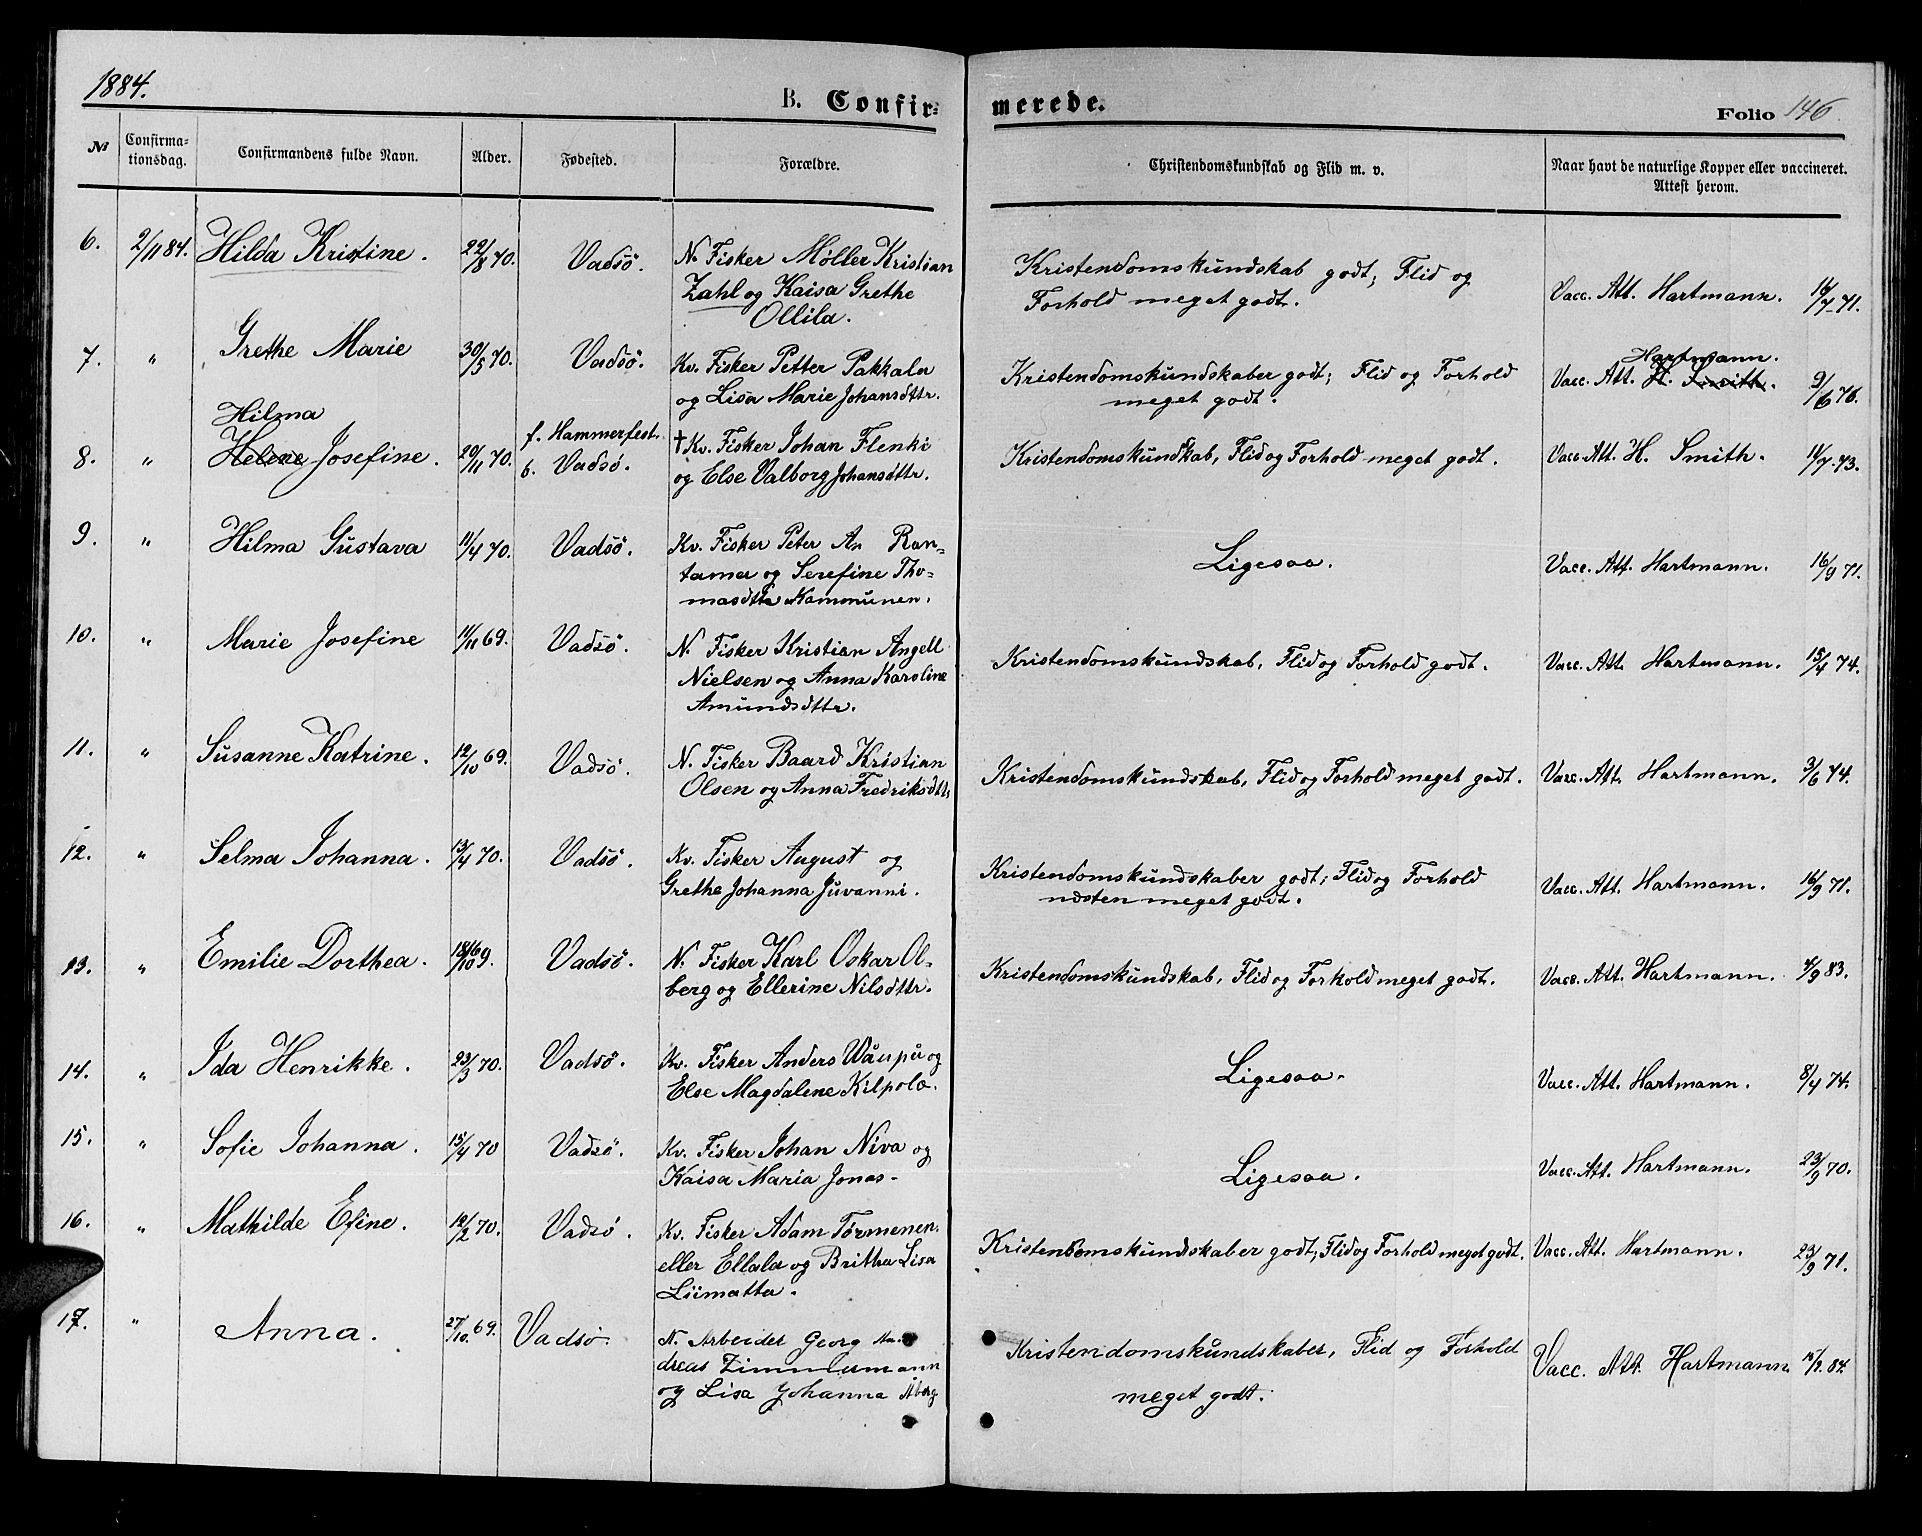 1884.
B. Confir-
merede.
Folio 146.
№
Confirma-
tionsdag.
Confirmandens fulde Navn.
Alder.
Fødested.
Forældre.
Christendomskundskab og Flid m. v.
Naar havt de naturlige Kopper eller vaccineret.
Attest herom.
6. 2/11 84. Hilda Kristine. 22/8 70. Vadsö. N. Fisker Möller Kristian
Zahl og Kaisa Grethe
Ollila.
Kristendomskundskab godt; Flid og
Forhold meget godt.
Vacc. Att. Hartmann. 14/7 71.
7. " Grethe Marie 30/5 70. Vadsö. Kv. Fisker Petter Pakkala
og Lisa Marie Johansdttr.
Kristendomskundskaber godt; Flid og Forhold
meget godt.
Hartmann.
Vacc. Att. H. Smith. 9/6 76.
Hilma
8. " Helene Josefine. 20/11 70. f. Hammerfest.
b. Vadsö.
† Kv. Fisker Johan Flenki
og Else Valborg Johansdttr.
Kristendomskundskab, Flid og Forhold meget godt.
Vacc. Att. H. Smith. 11/7 73.
9. " Hilma Gustava 11/4 70. Vadsö. Kv. Fisker Peter An Ran-
tama og Serefine Tho-
masdttr Kammunen.
Ligesaa.
Vacc. Att. Hartmann. 16/9 71.
10. " Marie Josefine 11/11 69. Vadsö. N. Fisker Kristian Angell
Nielsen og Anna Karoline
Amundsdttr.
Kristendomskundskab, Flid og Forhold godt.
Vacc. Att. Hartmann. 15/4 74.
11. " Susanne Katrine. 12/10 69. Vadsö. N. Fisker Baard Kristian
Olsen og Anna Fredriksdttr.
Kristendomskundskab, Flid og Forhold meget godt.
Vacc. Att. Hartmann. 3/6 74.
12. " Selma Johanna. 13/4 70. Vadsö. Kv. Fisker August og
Grethe Johanna Juvanni.
Kristendomskundskaber godt; Flid og Forhold
næsten meget godt.
Vacc. Att. Hartmann. 16/9 71.
13. " Emilie Dorthea. 18/10 69. Vadsö. N. Fisker Karl Oskar Ol-
berg og Ellerine Nilsdttr.
Kristendomskundskab, Flid og Forhold meget godt.
Vacc. Att. Hartmann. 4/9 83.
14. " Ida Henrikke. 23/3 70. Vadsö. Kv. Fisker Anders Wäupä og
Else Magdalene Kilpola.
Ligesaa.
Vacc. Att. Hartmann. 8/4 74.
15. " Sofie Johanna. 15/4 70 Vadsö. Kv. Fisker Johan Niva og
Kaisa Maria Jonas-
Ligesaa.
Vacc. Att. Hartmann. 23/9 70.
16. " Mathilde Efine. 12/2 70. Vadsö. Kv. Fisker Adam Törmenen.
eller Ellala og Britha Lisa
Liimatta.
Kristendomskundskaber godt, Flid og Forhold meget godt.
Vacc. Att. Hartmann. 23/9 71.
17. " Anna. 27/10 69. Vadsö. N. Arbeider Georg An-
dreas Zimmermann
og Lisa Johanna Åberg
Kristendomskundskaber, Flid og Forhold
meget godt.
Vacc. Att. Hartmann. 84.